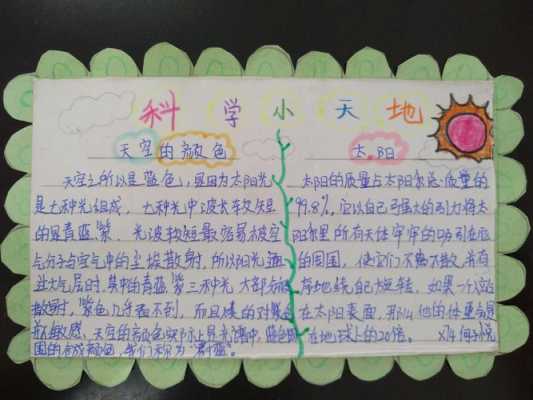 科学小天地
天空的颜色
天空之所以是蓝色,是因为太阳光
是七种光组成,七种光中波长较短
的是青蓝紫,光波较短最容易被空
气分子与空气中的尘埃散射,所以阳光通
过大气层时,其中的青蓝紫三种光大部分被
散射,紫色几乎看不到,而且的对紫色
敏感,天空的颜色实际上是光谱中蓝色
围的合成颜色,我们称为"蔚蓝"。
太阳
太阳的质量占太阳系总质量的
99.8%,它以自己强大的引力将太
阳系里所有天体牢牢的吸引在它
的周围,使它们不离不散,井有
序地绕自己旋转,如果一个人站
在太阳表面,那么他的体重会是
在地球上的20倍。